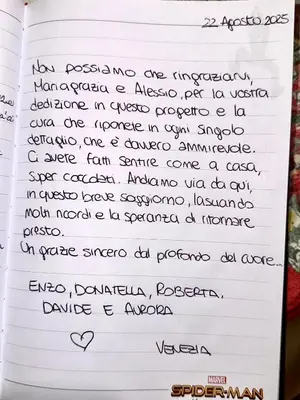 22 Agosto 2025
Non possiamo che ringraziarvi,
Mariagrazia e Alessio, per la vostra
dedizione in questo progetto e la
cura che riponete in ogni singolo
dettaglio, che è davvero ammirevole.
Ci avete fatti sentire come a casa,
super coccolati. Andiamo via da qui,
in questo breve soggiorno, lasciando
molti ricordi e la speranza di ritornare
presto.
Un grazie sincero dal profondo del cuore...
ENZO, DONATELLA, ROBERTA,
DAVIDE E AURORA
VENEZIA
MARVEL
SPIDER-MAN